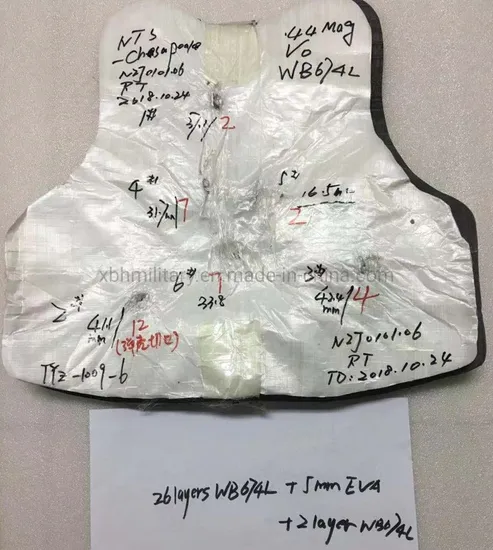 NTS
-Chesapeake
NIJ0101.06
RT
2018.10.24
1#
37.1/2
.44 Mag
V0
WB674L
4#
31.7mm/7
5#
16.5mm
2
xbhmilitary.en.made-in-china.com
2#
41.1
mm/12
6#
7
33.8
3#
42.4
mm/4
TYZ-1009-6
NIJ0101.06
RT
TD: 2018.10.24
26layers WB674L + 5mm EVA
+ 2layer WB674L